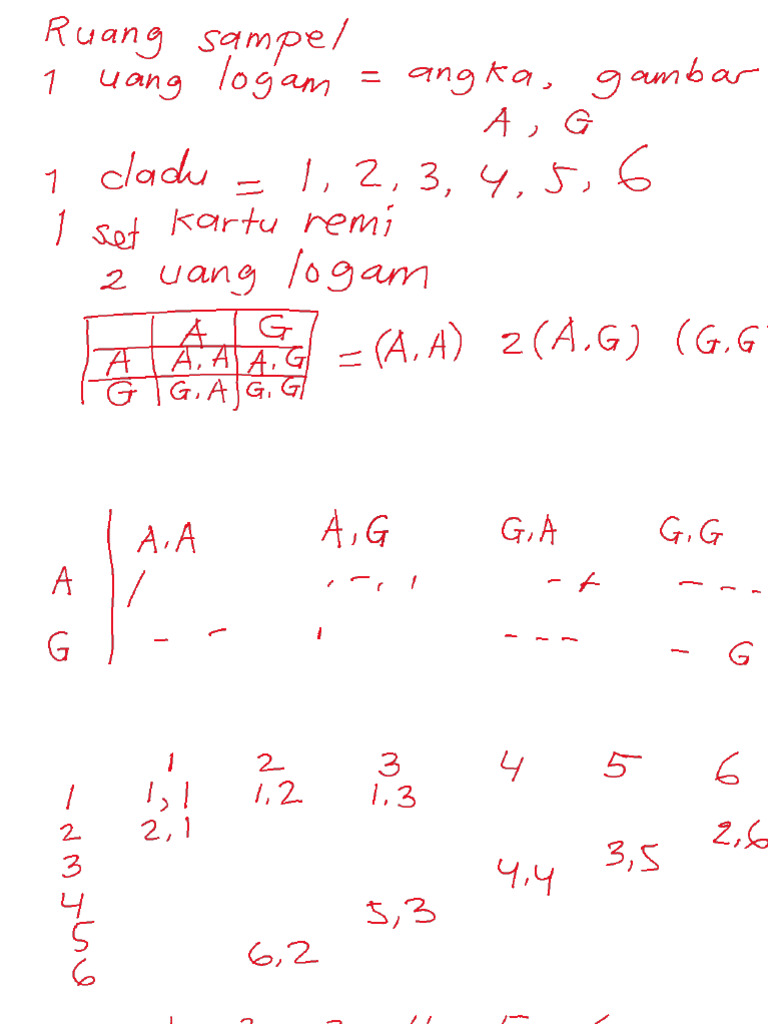 Ruang sampel
1 uang logam = angka, gambar
A, G
1 dadu = 1, 2, 3, 4, 5, 6
1 set kartu remi
2 uang logam
A G
A A, A A, G = (A, A) 2(A, G) (G, G
G G, A G, G
A, A A, G G, A G, G
A
G G
1 2 3 4 5 6
1 1,1 1,2 1,3
2 2,1 2,6
3 3,5
4 4,4
5 5,3
6 6,2